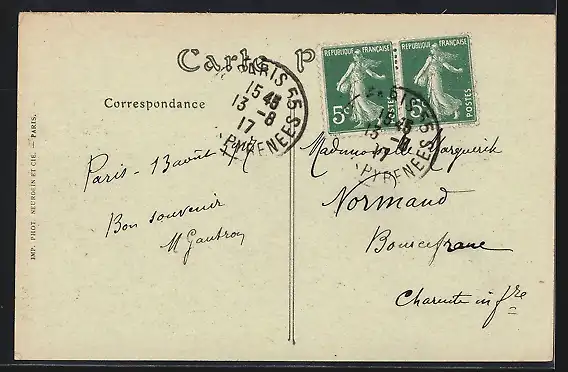 Carte P
REPUBLIQUE FRANÇAISE
REPUBLIQUE FRANÇAISE
5c
5c
POSTES
POSTES
PARIS 55
15 45
13 - 8
17
PYRENEES
PARIS 55
15 45
13 - 8
17
PYRENEES
Correspondance
IMP. PHOT. NEURDEIN ET CIE. — PARIS.
Paris - 13 août
Bon souvenir
Mademoiselle Marguerite
Normand
Bourcefranc
Charente infre